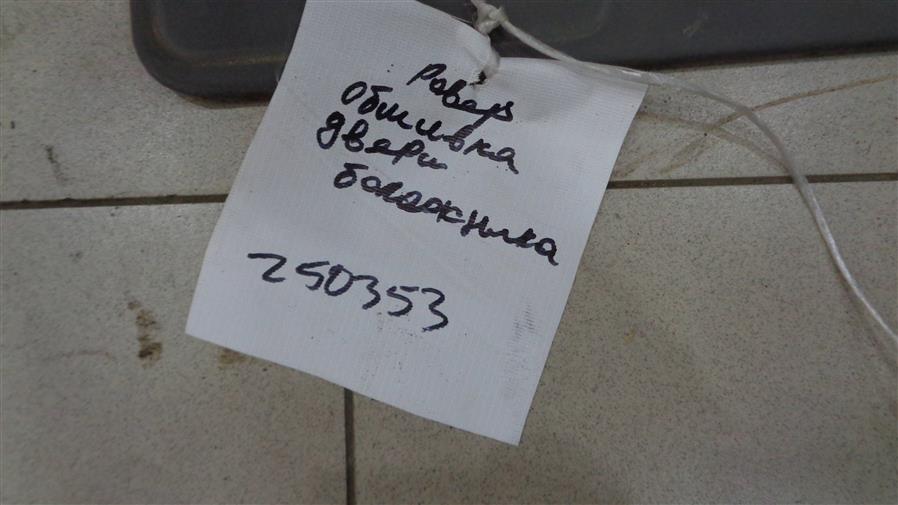 Ровер
Обшивка
двери
багажника
250353